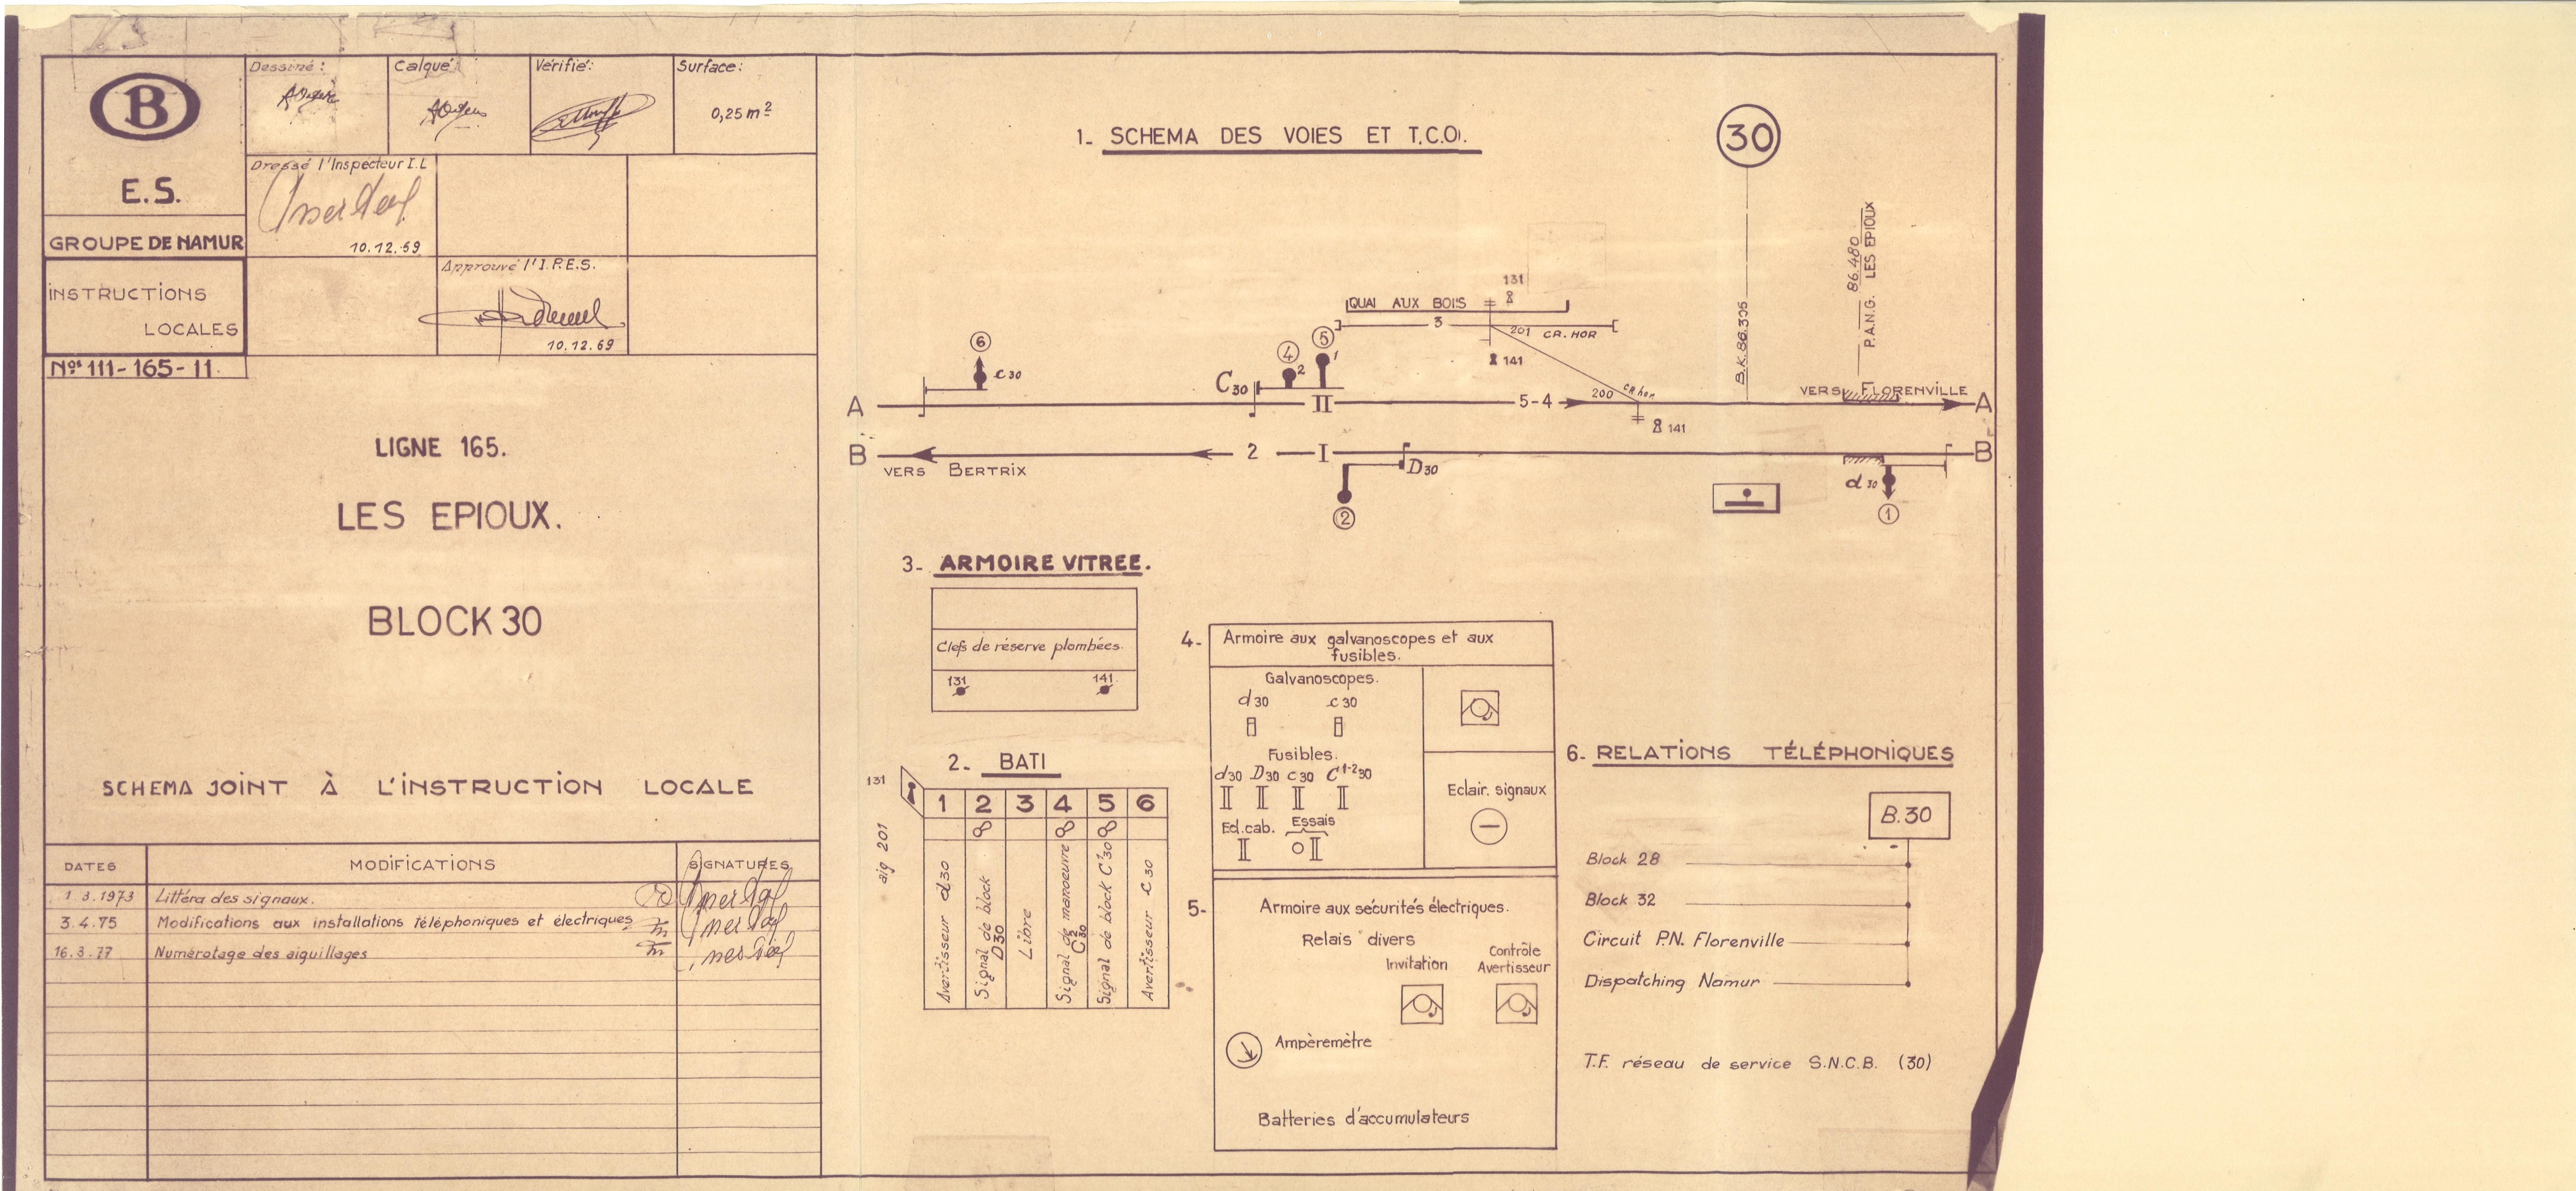 B
E.S.
GROUPE DE NAMUR
INSTRUCTIONS
LOCALES
Nos 111-165-11
Dessiné:
Calqué
Vérifié:
Surface:
0,25 m²
Dressé l'Inspecteur I.L
10.12.69
Approuvé l'I.P.E.S.
10.12.69
LIGNE 165.
LES EPIOUX.
BLOCK 30
SCHEMA JOINT À L'INSTRUCTION LOCALE
DATES MODIFICATIONS SIGNATURES
1 3.1973 Littéra des signaux.
3.4.75 Modifications aux installations téléphoniques et électriques
16.3.77 Numérotage des aiguillages
1- SCHEMA DES VOIES ET T.C.O.
30
B.K. 86.305
86.480
P.A.N.G. LES EPIOUX
131
QUAI AUX BOIS
3
201 CR.HOR
141
6
c 30
4
2
5
1
C30
A
II
5-4
200 CR.hor
VERS FLORENVILLE
A
141
B
VERS BERTRIX
2
I
D30
B
2
d 30
1
3- ARMOIRE VITREE.
Clefs de réserve plombées.
131 141
2- BATI
131
aig 201
1 2 3 4 5 6
Avertisseur d30
Signal de block D30
Libre
Signal de manoeuvre C²30
Signal de block C'30
Avertisseur c 30
4- Armoire aux galvanoscopes et aux
fusibles.
Galvanoscopes.
d30 c30
Fusibles.
d30 D30 c30 C1-2 30
Ecl.cab. Essais
Eclair. signaux
5- Armoire aux sécurités électriques.
Relais divers
Invitation
Contrôle
Avertisseur
Ampèremètre
Batteries d'accumulateurs
6- RELATIONS TÉLÉPHONIQUES
B.30
Block 28
Block 32
Circuit P.N. Florenville
Dispatching Namur
T.F. réseau de service S.N.C.B. (30)